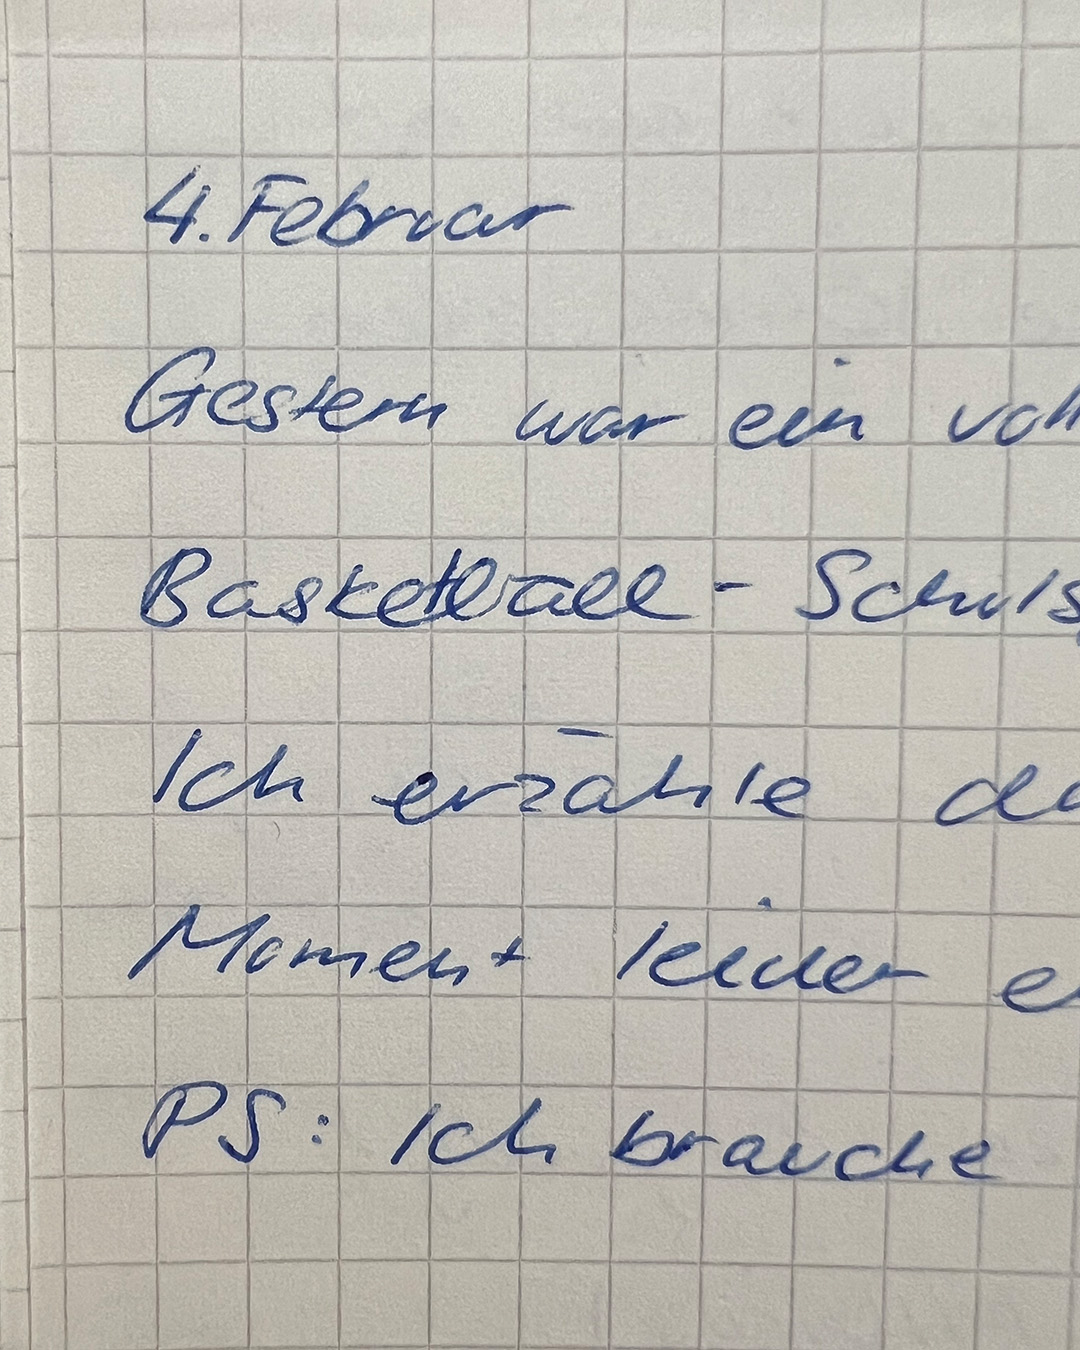 4. Februar
Gestern war ein voll
Basketball - Schuls
Ich erzähle da
Moment leider e
PS: Ich brauche